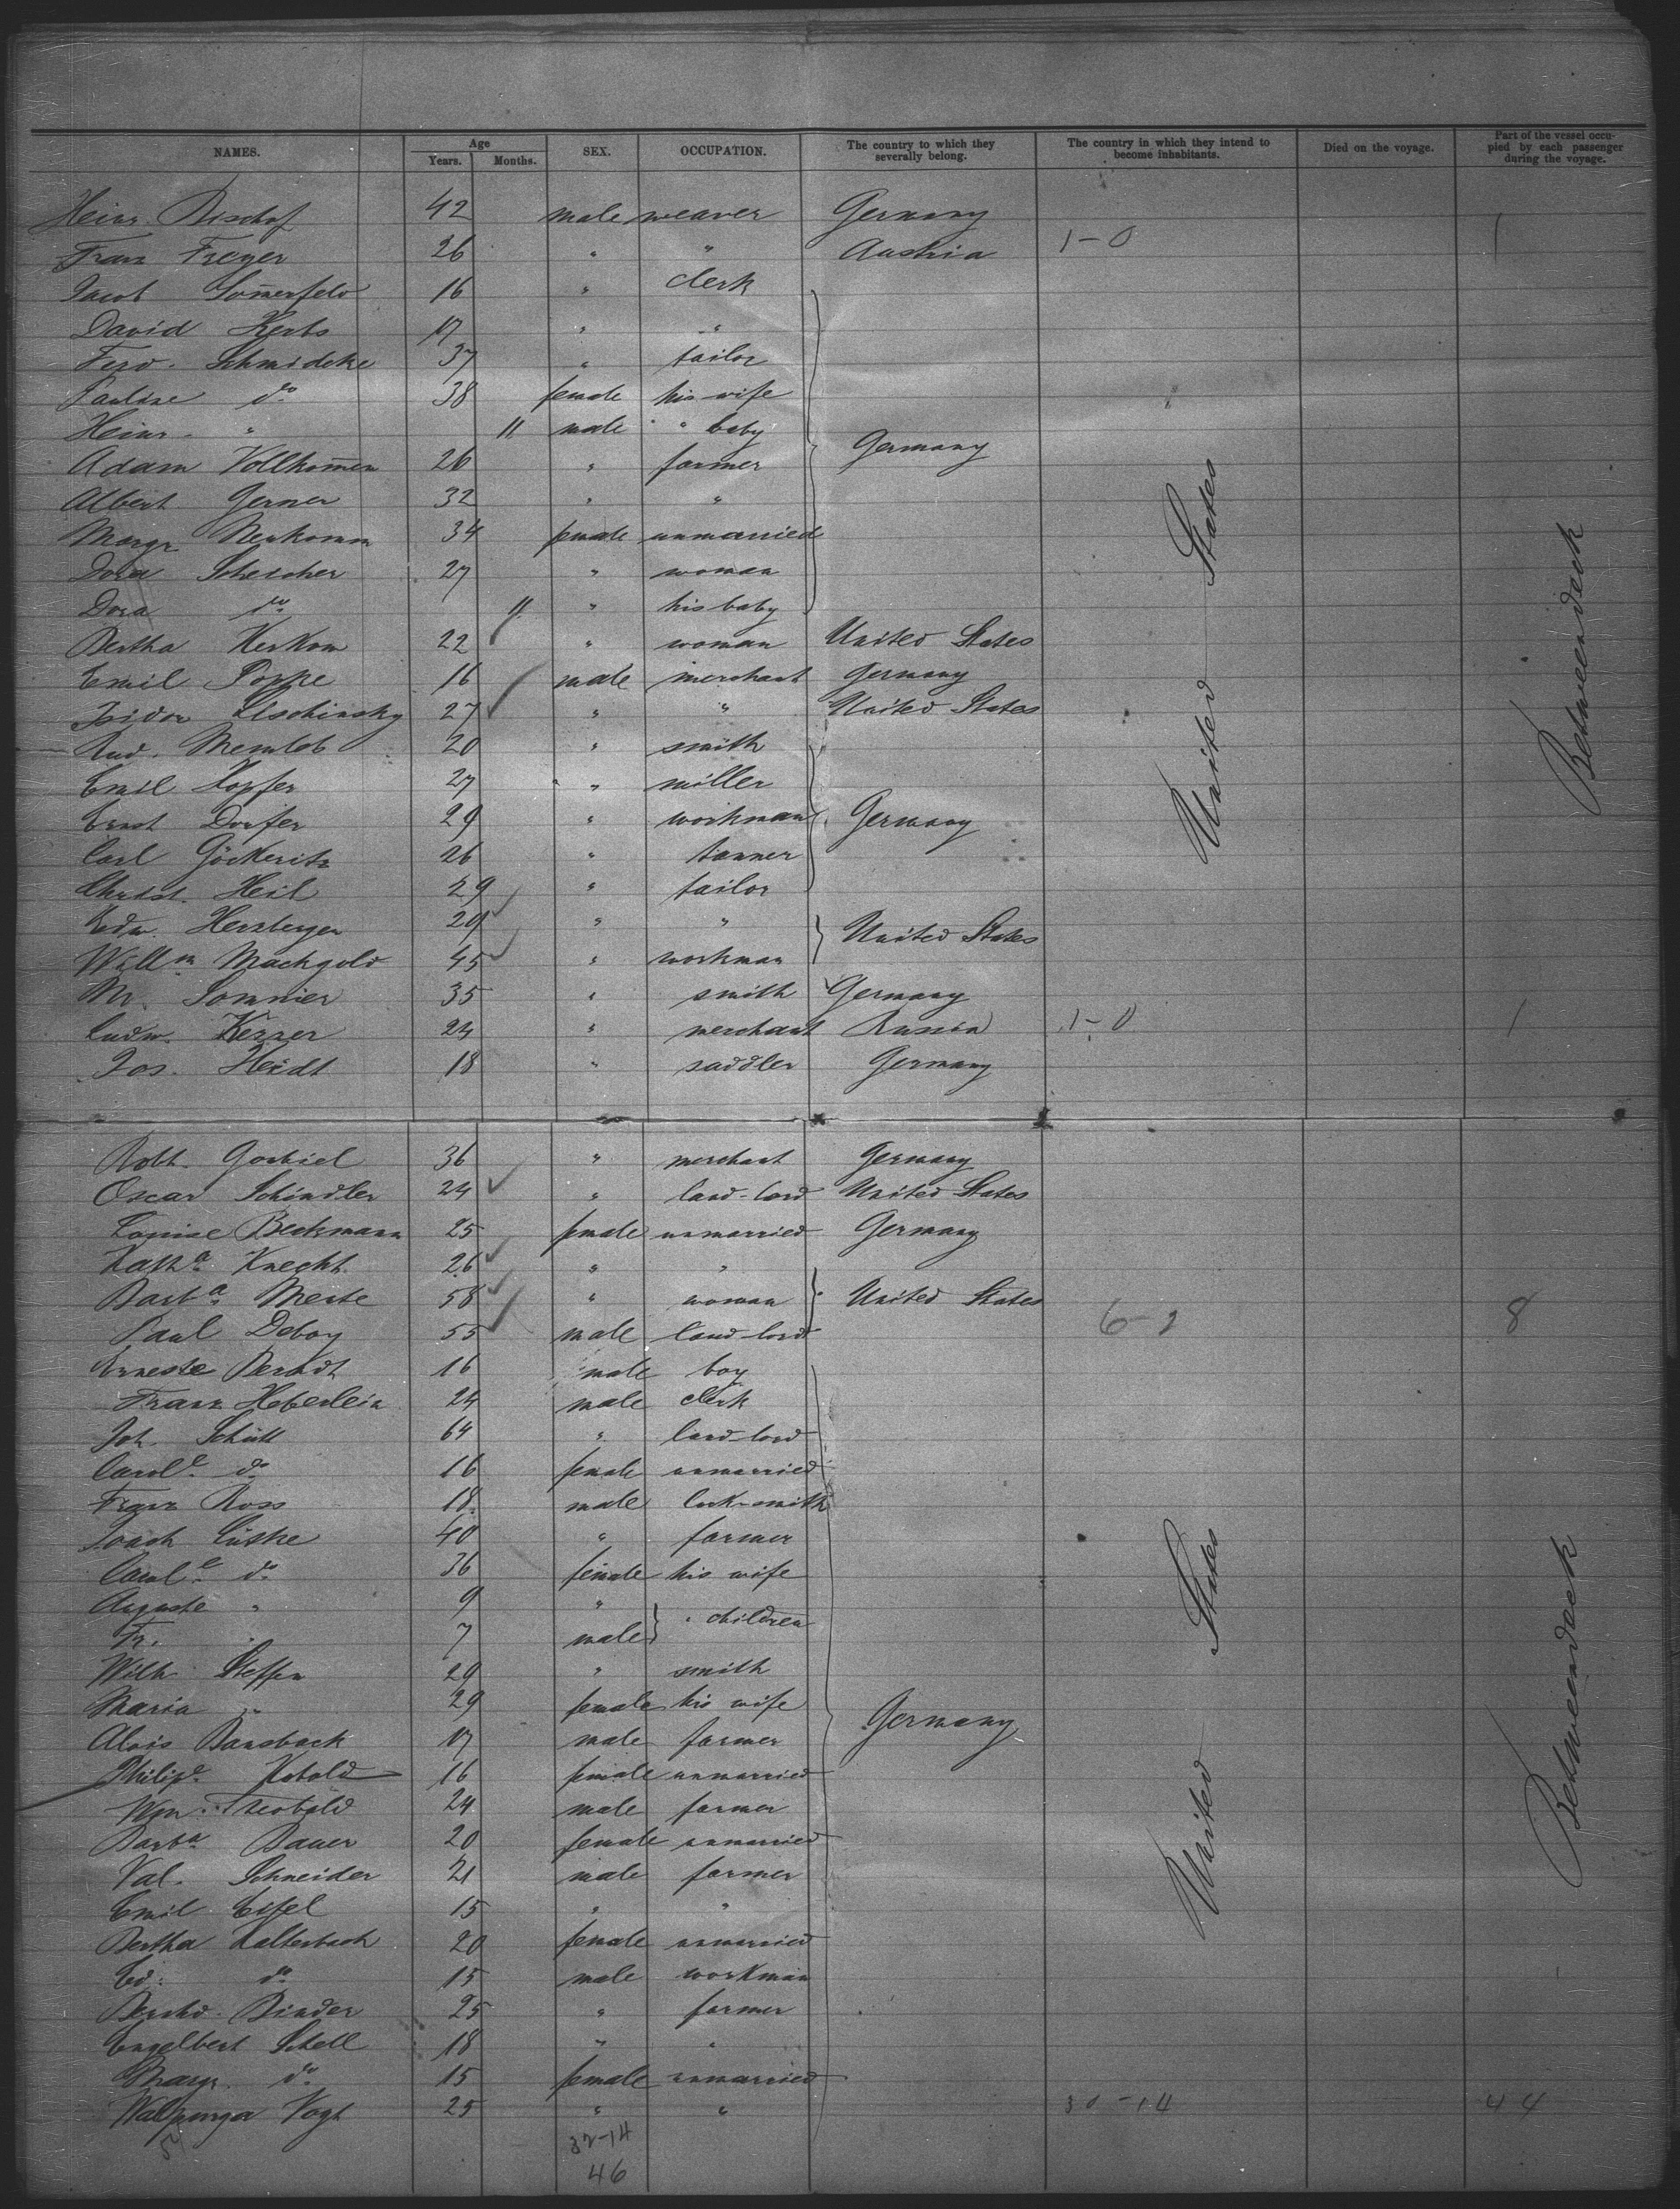 NAMES. Age Years. Months. SEX. OCCUPATION. The country to which they severally belong. The country in which they intend to become inhabitants. Died on the voyage. Part of the vessel occupied by each passenger during the voyage.
Heinr. Bischof 42 male weaver Germany
Franz Freyer 26 " " Austria 1-0 1
Jacob Som̅erfeld 16 " clerk
David Kerbs 17 " "
Ferd. Schmideke 37 " tailor
Pauline do 38 female his wife
Heinr. " 11 male " baby
Adam Vollkom̅en 26 " farmer Germany
Albert Gerner 32 " "
Margr Neukomm 34 female unmarried
Dora Schercher 27 " woman
Dora do 11 " his baby
Bertha Kerkow 22 " woman United States
Emil Poppe 16 male merchant Germany
Isidor Lischinsky 27 " " United States
Rud. Memlob 20 " smith
Emil Hopfer 27 " miller
Ernst Dorfer 29 " workman Germany
Carl Göckeritz 26 " tanner
Christ. Heil 29 " tailor
Edw. Herzberger 29 " " United States
Willm Machgold 45 " workman
M. Sommier 35 " smith Germany
Ludw. Kerner 24 " merchant Russia 1-0 1
Jos. Heidt 18 " saddler Germany
United States
Betweendeck
Robt. Gorbiel 36 " merchant Germany
Oscar Schindler 24 " land-lord United States
Louise Beckmann 25 female unmarried Germany
Katha Knecht 26 " "
Barba Merte 58 " woman United States 6-2 8
Paul Deboy 55 male land-lord
Erneste Berndt 16 male boy
Franz Heberlein 24 male clerk
Joh. Schütt 64 " land-lord
Carole do 16 female unmarried
Franz Ross 18 male lock-smith
Joach Lüthe 40 " farmer
Carole do 36 female his wife
Auguste " 9 " " children
Fr. " 7 male
Wilh Steffen 29 " smith
Maria " 29 female his wife
Alois Bansback 17 male farmer Germany
Philipe Kobold 16 female unmarried
Wm. Theobald 24 male farmer
Barba Bauer 20 female unmarried
Val. Schneider 21 male farmer
Emil Eifel 15 " "
Bertha Kalterbach 20 female unmarried
Ed. do 15 male workman
Bernhd. Binder 25 " farmer
Engelbert Schell 18 " "
Margr. do 15 female unmarried
Walpurga Vogt 25 " " 30-14 44
United States
Betweendeck
32-14
46